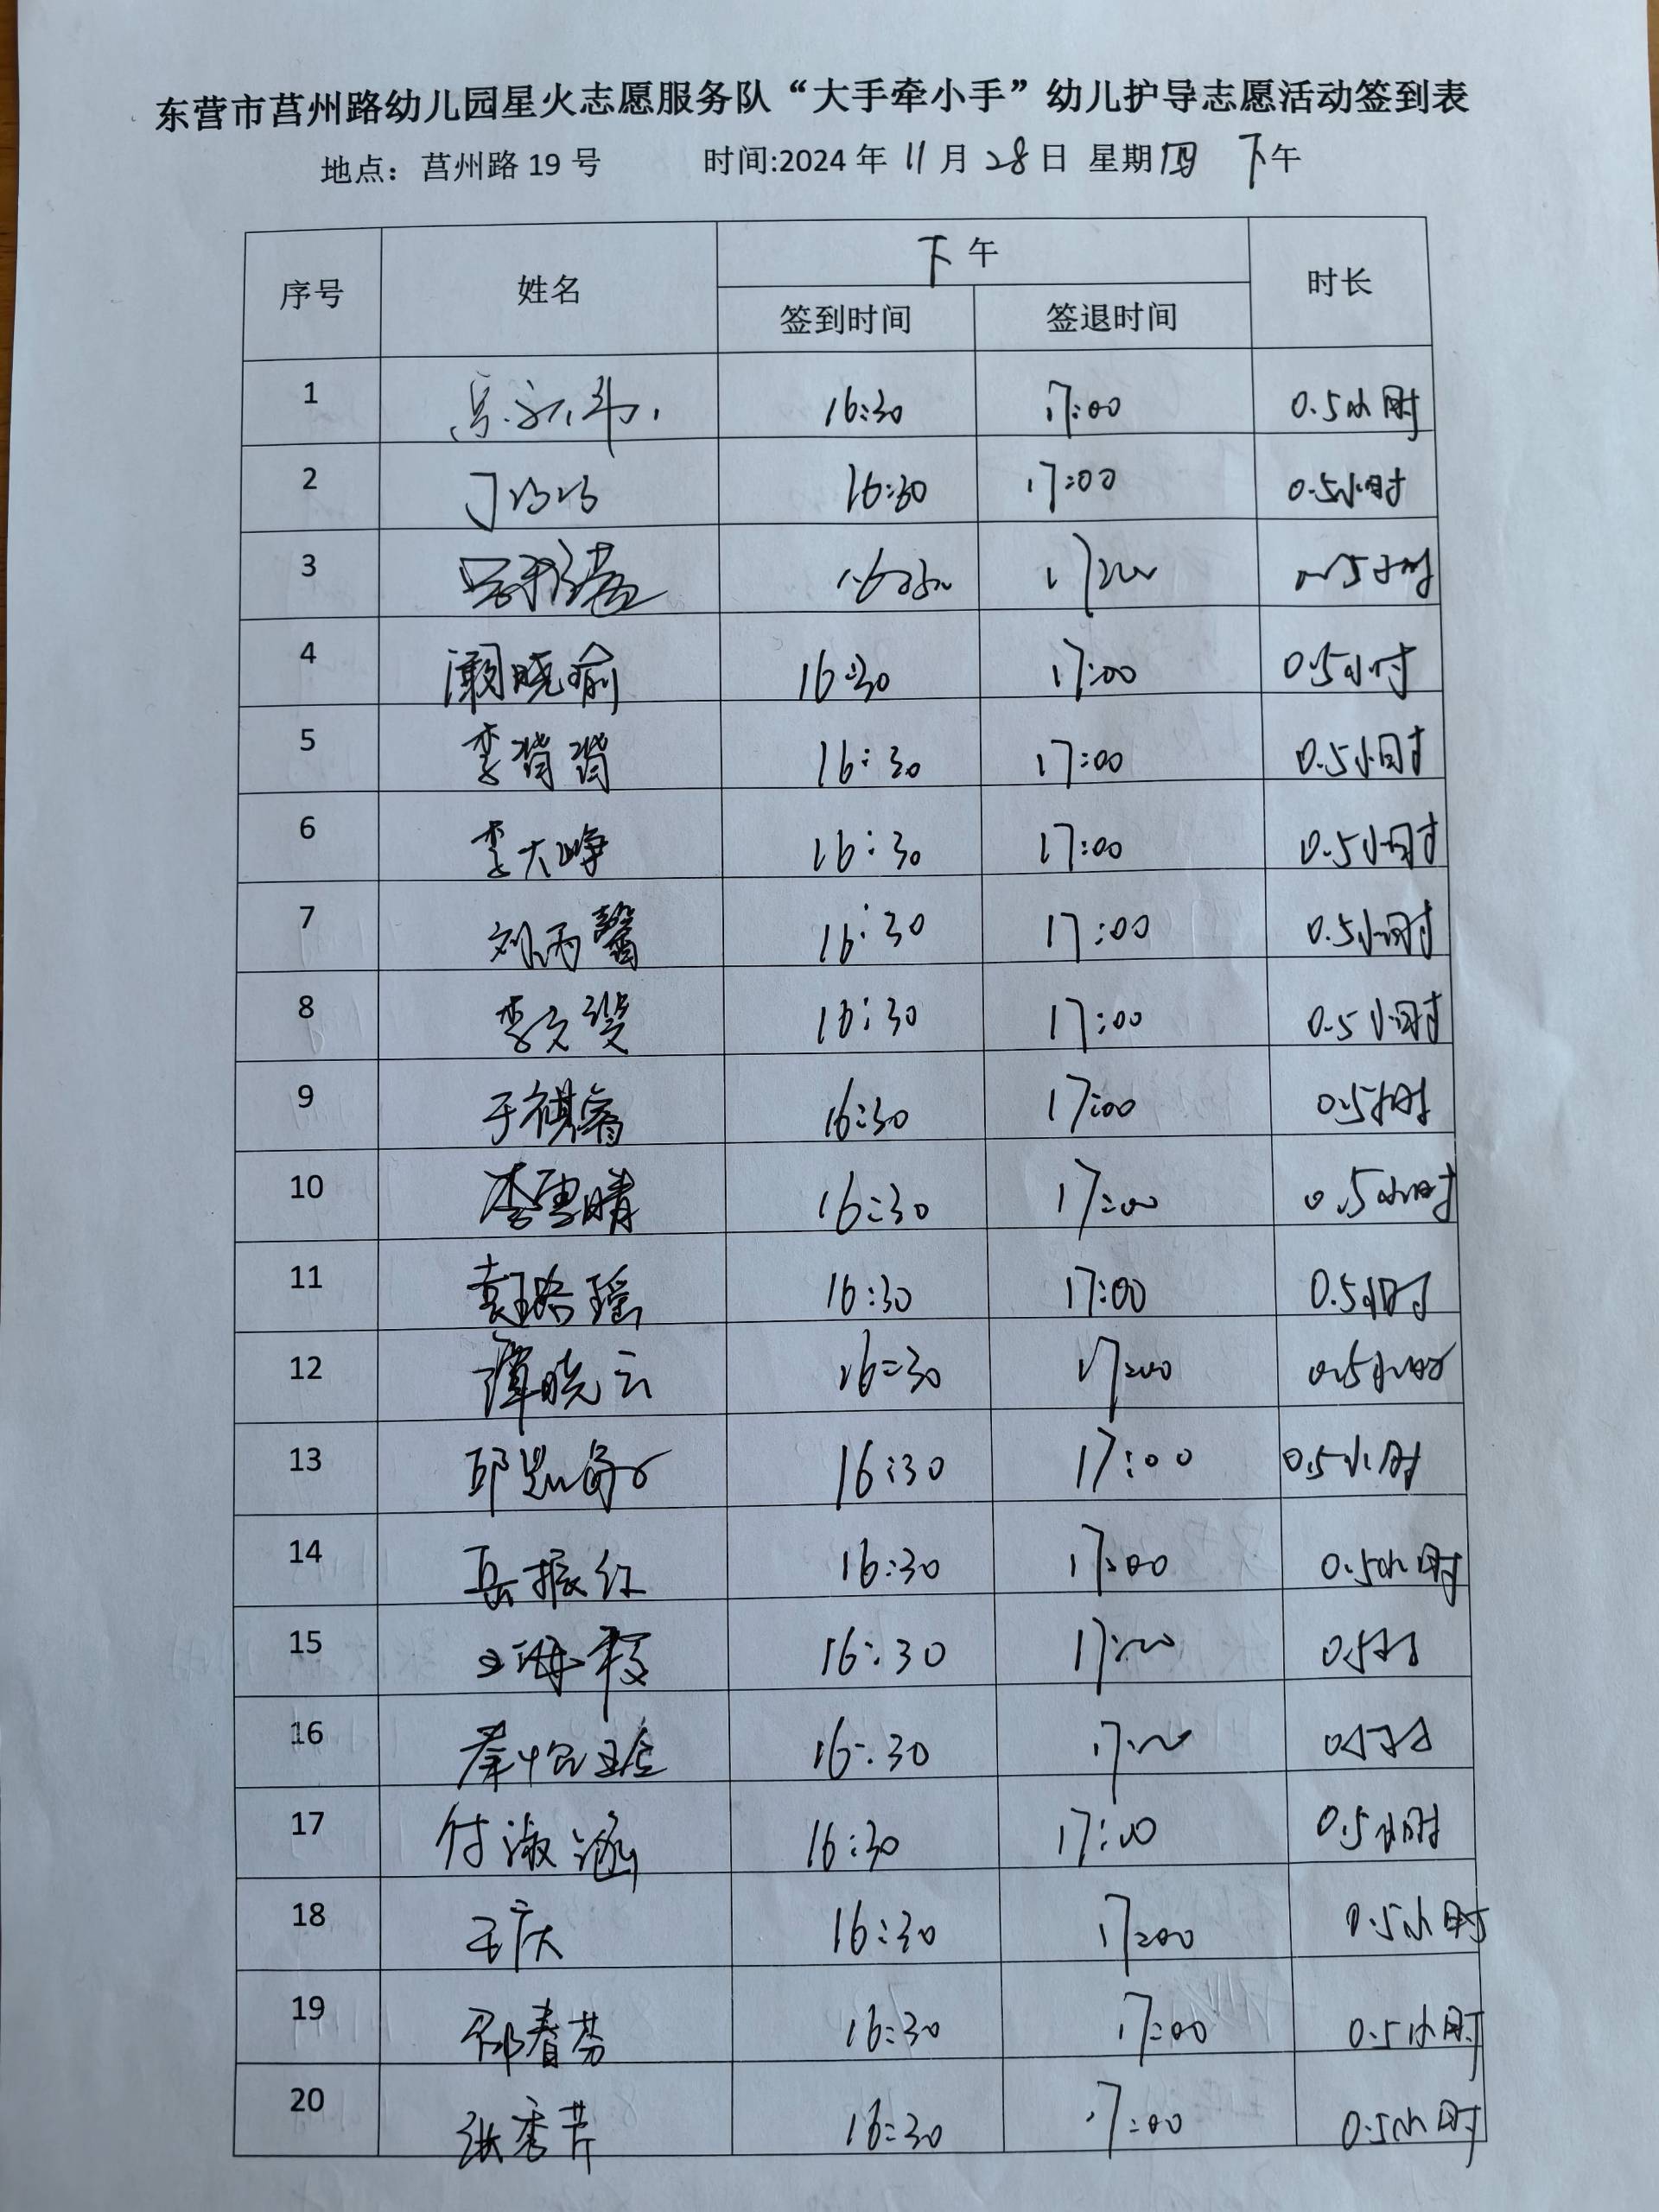 东营市莒州路幼儿园星火志愿服务队“大手牵小手”幼儿护导志愿活动签到表
地点：莒州路19号 时间:2024年11月28日 星期四 下午
序号 姓名 下午 时长
签到时间 签退时间
1 16:30 17:00 0.5小时
2 丁 16:30 17:00 0.5小时
3 16:30 17:00 0.5小时
4 阚晓瑜 16:30 17:00 0.5小时
5 李 16:30 17:00 0.5小时
6 李大峥 16:30 17:00 0.5小时
7 刘丙馨 16:30 17:00 0.5小时
8 李文 16:30 17:00 0.5小时
9 于祺睿 16:30 17:00 0.5小时
10 李雪晴 16:30 17:00 0.5小时
11 袁珞瑶 16:30 17:00 0.5小时
12 谭晓云 16:30 17:00 0.5小时
13 邱 16:30 17:00 0.5小时
14 岳振红 16:30 17:00 0.5小时
15 16:30 17:00 0.5小时
16 秦 16:30 17:00 0.5小时
17 付淑涵 16:30 17:00 0.5小时
18 王庆 16:30 17:00 0.5小时
19 邵春芬 16:30 17:00 0.5小时
20 张秀芹 16:30 17:00 0.5小时